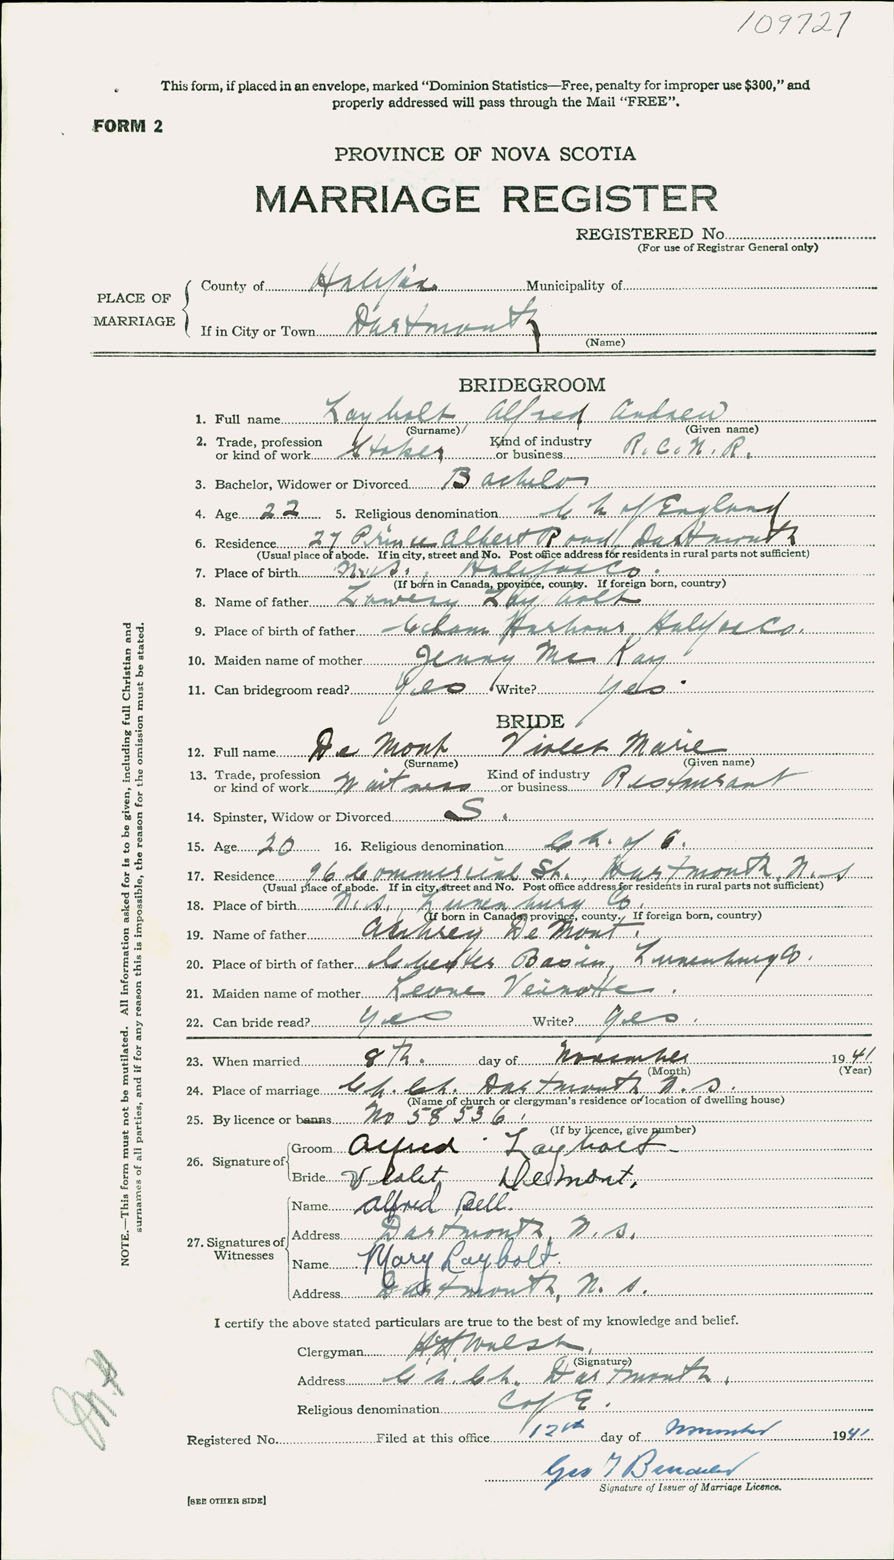 109727
This form, if placed in an envelope, marked “Dominion Statistics—Free, penalty for improper use $300,” and
properly addressed will pass through the Mail “FREE”.
FORM 2
PROVINCE OF NOVA SCOTIA
MARRIAGE REGISTER
REGISTERED No.
(For use of Registrar General only)
PLACE OF MARRIAGE
County of Halifax Municipality of
If in City or Town Dartmouth
(Name)
BRIDEGROOM
1. Full name Laybolt Alfred Andrew
(Surname) (Given name)
2. Trade, profession or kind of work Stoker Kind of industry or business R.C.N.R.
3. Bachelor, Widower or Divorced Bachelor
4. Age 22 5. Religious denomination Ch of England
6. Residence 27 Prince Albert Road, Dartmouth
(Usual place of abode. If in city, street and No. Post office address for residents in rural parts not sufficient)
7. Place of birth N.S., Halifax Co.
(If born in Canada, province, county. If foreign born, country)
8. Name of father Laybolt
9. Place of birth of father Harbour, Halifax Co.
10. Maiden name of mother Jenny McKay
11. Can bridegroom read? Yes Write? Yes.
BRIDE
12. Full name De Mont Violet Marie
(Surname) (Given name)
13. Trade, profession or kind of work Waitress Kind of industry or business Restaurant
14. Spinster, Widow or Divorced S.
15. Age 20 16. Religious denomination Ch. of E.
17. Residence 96 Commercial St., Dartmouth, N.S
(Usual place of abode. If in city, street and No. Post office address for residents in rural parts not sufficient)
18. Place of birth N.S. Lunenburg Co.
(If born in Canada, province, county. If foreign born, country)
19. Name of father Aubrey DeMont.
20. Place of birth of father Chester Basin, Lunenburg Co.
21. Maiden name of mother Leone Veinotte.
22. Can bride read? Yes Write? Yes.
23. When married 8th. day of November 1941
(Month) (Year)
24. Place of marriage Ch. Ch. Dartmouth N.S.
(Name of church or clergyman’s residence or location of dwelling house)
25. By licence or banns No 58536.
(If by licence, give number)
26. Signature of
Groom Alfred Laybolt
Bride Violet Demont.
27. Signatures of Witnesses
Name Alfred Bell.
Address Dartmouth, N.S.
Name Mary Laybolt.
Address Dartmouth, N.S.
I certify the above stated particulars are true to the best of my knowledge and belief.
Clergyman HH Walsh
(Signature)
Address Ch. Ch. Dartmouth.
Religious denomination C of E.
Registered No. Filed at this office 12th day of November 1941
Geo
Signature of Issuer of Marriage Licence.
[SEE OTHER SIDE]
NOTE.—This form must not be mutilated. All information asked for is to be given, including full Christian and
surnames of all parties, and if for any reason this is impossible, the reason for the omission must be stated.